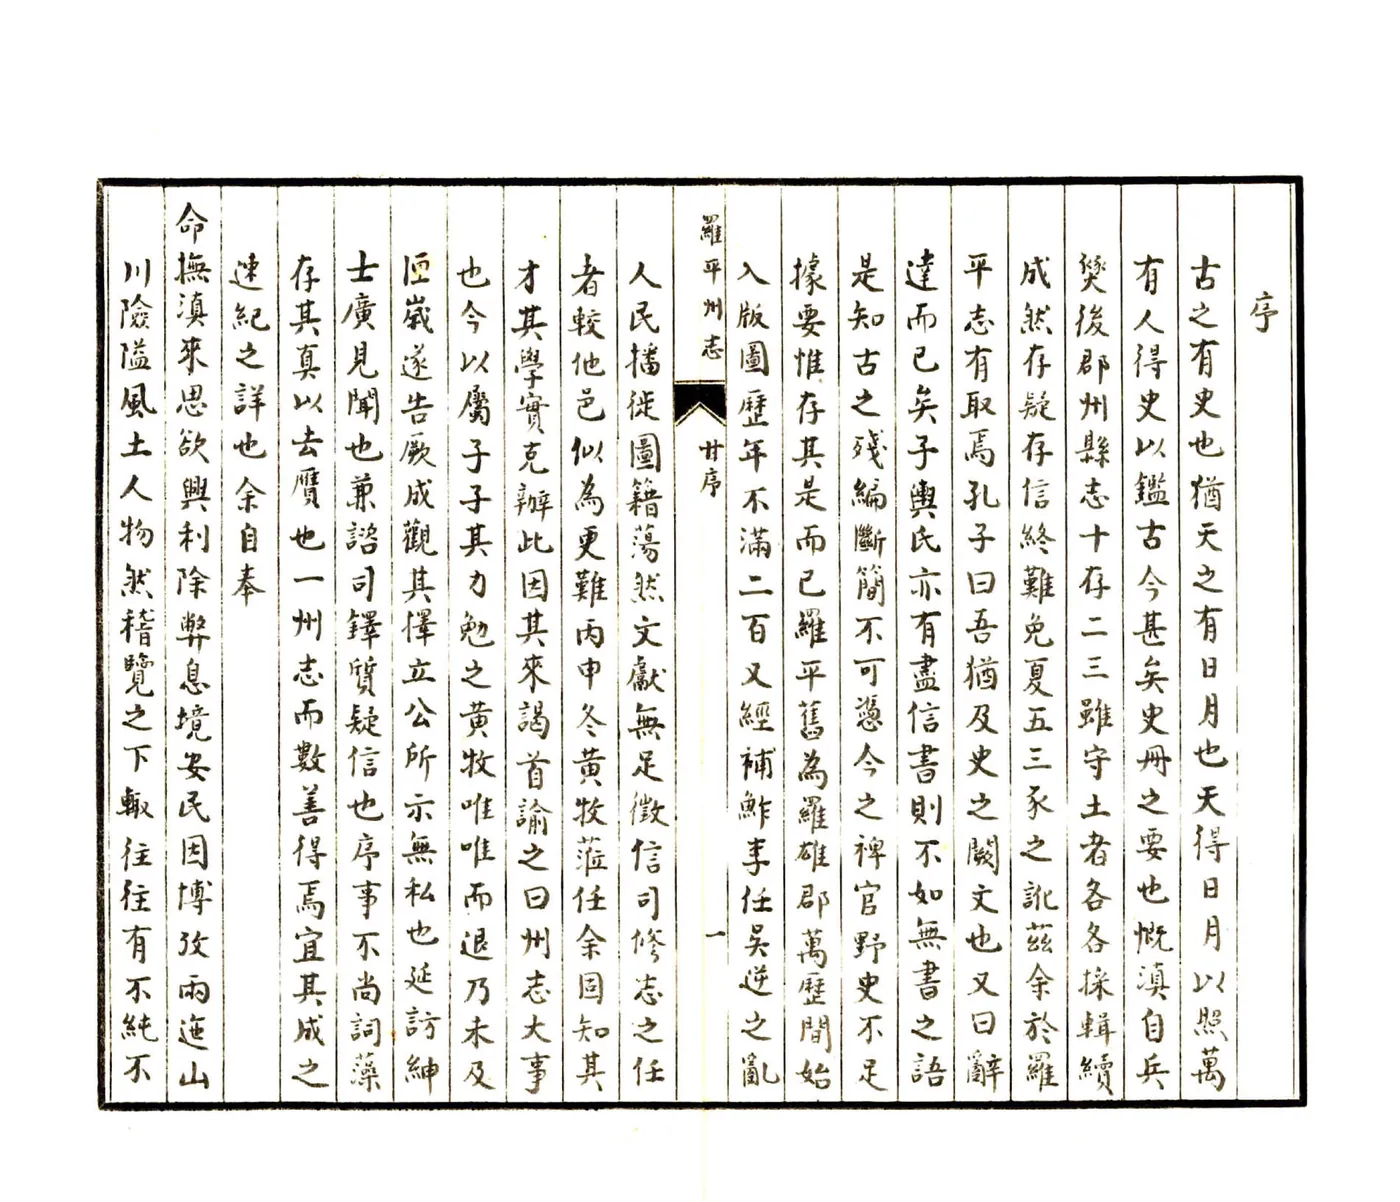 序
古之有史也猶天之有日月也天得日月以照萬
有人得史以鑑古今甚矣史冊之要也慨滇自兵
燹後郡州縣志十存二三雖守土者各各採輯續
成然存疑存信終難免夏五三豕之訛茲余於羅
平志有取焉孔子曰吾猶及史之闕文也又曰辭
達而已矣子輿氏亦有盡信書則不如無書之語
是知古之殘編斷簡不可憑今之稗官野史不足
據要惟存其是而已羅平舊為羅雄郡萬歷間始
入版圖歷年不滿二百又經補鮓李任吳逆之亂
羅平州志
甘序
一
人民播徙圖籍蕩然文獻無足徵信司修志之任
者較他邑似為更難丙申冬黃牧蒞任余固知其
才其學實克辦此因其來謁首諭之曰州志大事
也今以屬子子其力勉之黃牧唯唯而退乃未及
匝歲遂告厥成觀其擇立公所示無私也延訪紳
士廣見聞也兼諮司鐸質疑信也序事不尚詞藻
存其真以去贋也一州志而數善得焉宜其成之
速紀之詳也余自奉
命撫滇來思欲興利除弊息境安民因博攷兩迤山
川險隘風土人物然稽覽之下輙往往有不純不